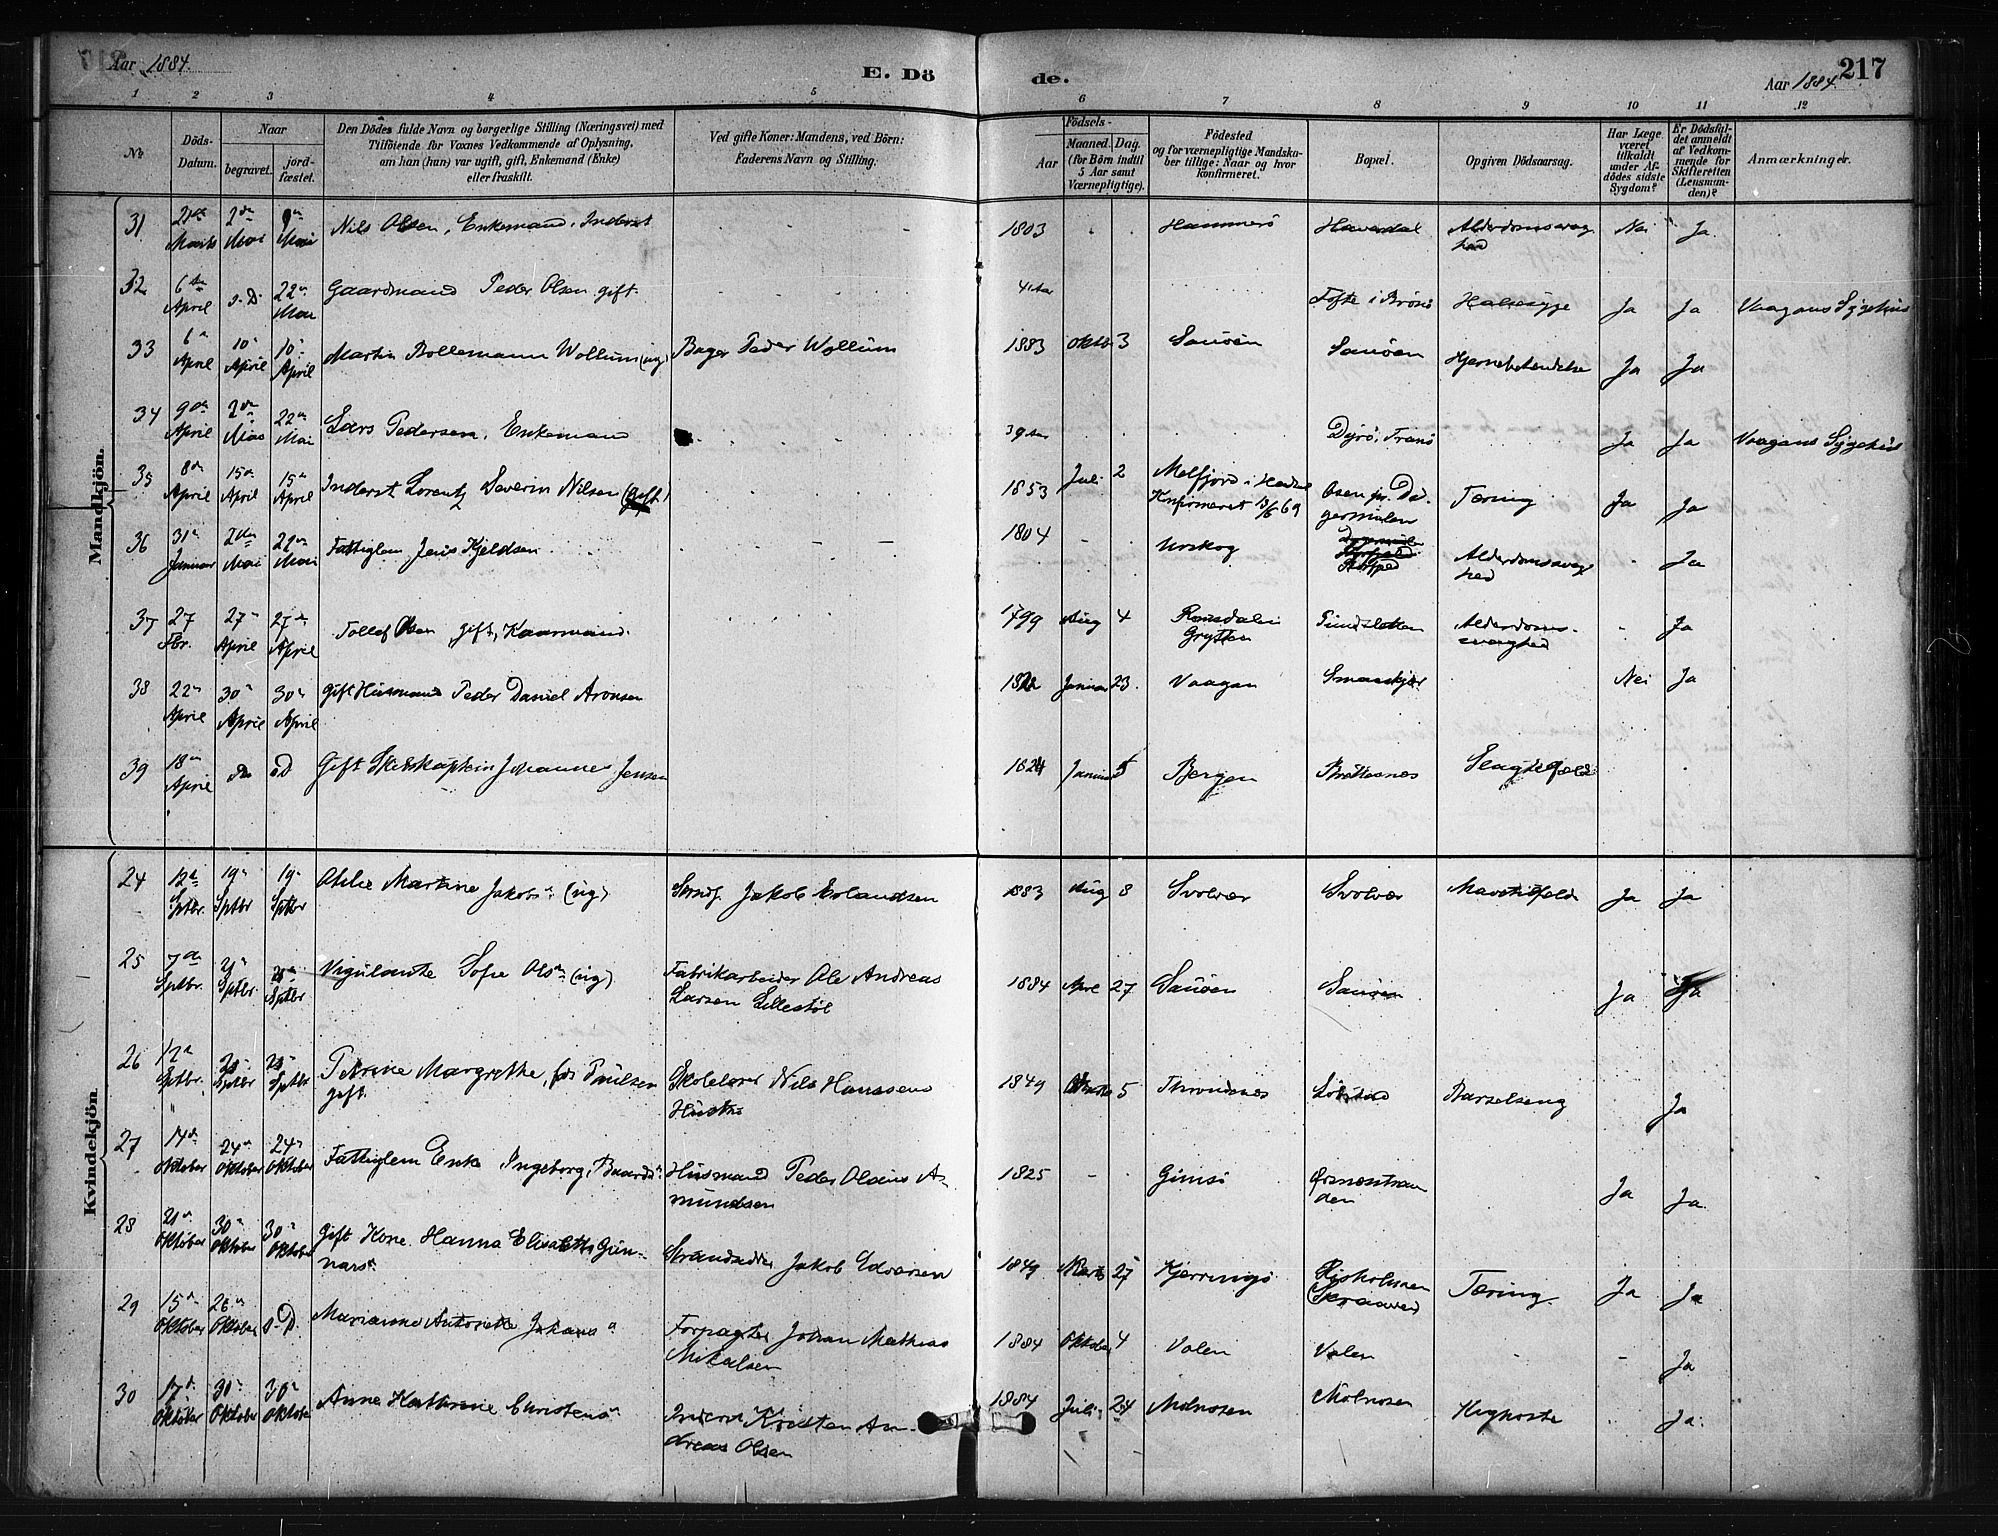 Aar 1884.
E. Dö
de.
Aar 1884.
217
1 2 3 4 5 6 7 8 9 10 11 12
No
Döds-
Datum.
Naar
begravet.
jord-
fæstet.
Den Dödes fulde Navn og borgerlige Stilling (Næringsvei) med
Tilföiende for Voxnes Vedkommende af Oplysning,
om han (hun) var ugift, gift, Enkemand (Enke)
eller fraskilt.
Ved gifte Koner: Mandens, ved Börn:
Faderens Navn og Stilling.
Födsels-
Aar
Maaned. Dag.
(for Börn indtil
5 Aar samt
Værnepligtige).
Födested
og for værnepligtige Mandska-
ber tillige: Naar og hvor
konfirmeret.
Bopæl.
Opgiven Dödsaarsag.
Har Læge
været
tilkaldt
under Af-
dödes sidste
Sygdom?
Er Dödsfal-
det anmeldt
af Vedkom-
mende for
Skifteretten
(Lensman-
den)?
Anmærkninger.
Mandkjön.
31 Marts Mai Mai Nils Olsen, Enkemand, Inderst 1803 Hammerö Alderdomssvag
hed Nei Ja
32 6te April s. D. 22 Mai Gaardmand Peder Olsen gift. 41 Aar Tofte i Brönö Halsesyge Ja Ja Vaagans Sygehus
33 6 April 10 April 10 April Martin Wollum (ug) Bager Peder Wollum 1883 Oktb 3 Sauöen Sauöen Hjernebetendelse Ja Ja
34 9de April 2de Mai 22 Mai Lars Pedersen, Enkemand 39 Aar Dyrö, Tranö Ja Ja Vaagans Sygehus
35 8de April 15de April 15 April Inderst Lorentz Severin Nilsen (gift) 1853 Juli 2 Melfjord i
Konfirmeret 69 Tæring Ja Ja
36 31 Januar Mai 22 Mai Fattiglem Jens Kjeldsen 1804 Alderdomssvag
hed Ja
37 27 Fbr. 27 April 27 April Tollef Olsen gift, Kaarmand. 1799 Aug 4 Romsdalen
Grytten Alderdoms-
svaghed Ja
38 22 April 30 April 30 April Gift Husmand Peder Daniel Aronsen Januar 23. Vaagan Nei Ja
39 18 April Gift Skibskaptein Johannes Jensen Januar 5 Bergen Brettesnes
Kvindekjön.
24 12 Sptbr. 19 Sptbr 19 Sptbr Otilie Martine Jakobs (ug) Jakob Erlandsen 1883 Aug 8 Svolvær Svolvær Ja Ja
25 7de Sptbr. Sptbr Sptbr Sofie Ols (ug) Fabrikarbeider Ole Andreas
Larsen Lillestöl 1884 Apr 27 Sauöen Sauöen Ja Ja
26 12 Sptbr. Sptbr Sptbr Petrine Margrethe, föd Paulsen
gift Skolelærer Nils Hanssens
Hustru 1849 5 Throndenes Barselseng Ja
27 14de Oktober 24 Oktober 24 Oktober Fattiglem Enke Ingeborg Baards Husmand Peder Olaus A-
mundsen 1825 Gimsö Ørsnesstran
den Ja Ja
28 21 Oktober 30 Oktober 30 Oktober Gift Kone Hanna Elisabeth Gun-
nars Strandsidder Jakob Edvarsen 1849 Marts 27 Kjerringö Risholmen
(Skraaven) Tæring. Ja Ja
29 15 Oktober 26 Oktober s. D. Marianne Antonette Johans Forpagter Johan Mathias
Mikalsen 1884 Oktober 4 Volen Volen Ja
30 17 Oktober 30 Oktober 30 Oktober Anne Kathrine Christens Inderst Kristen An-
dreas Olsen 1884 Juli 24 Molnosen Molnosen Kighoste Ja.